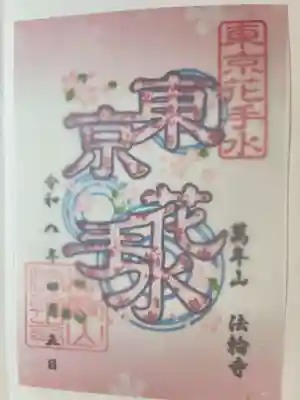 東京花手水
東京
花手水
萬年山 法輪寺
令和八年 四月 五日